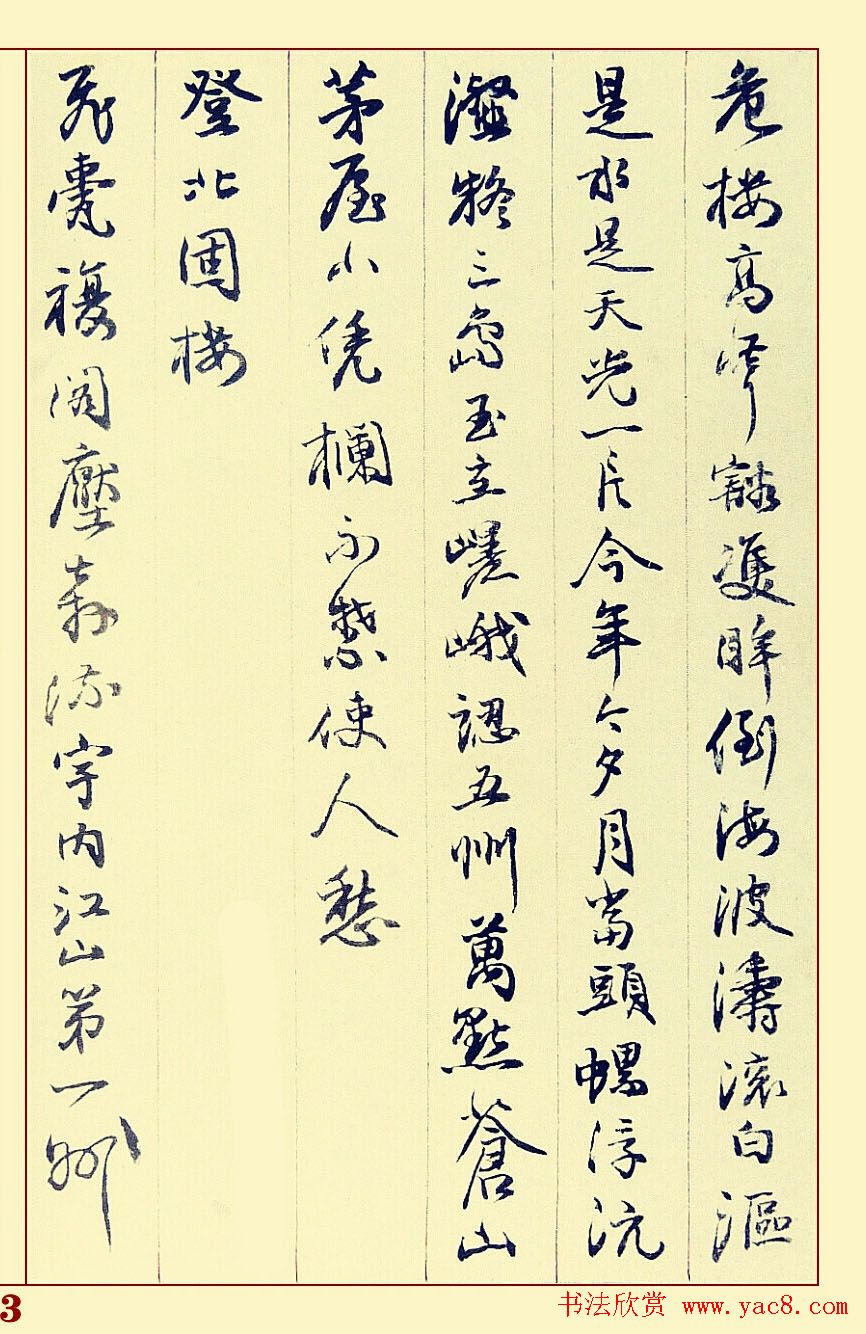 危樓高峙豁雙眸倒海波濤滾白漚
是水是天光一片今年今夕月當頭螺浮沆
瀣疑三島玉立嵯峨認五州萬點蒼山
茅屋小凭欄不禁使人愁
登北固樓
飛甍複閣壓奔流宇内江山第一州
3
书法欣赏 www.yac8.com